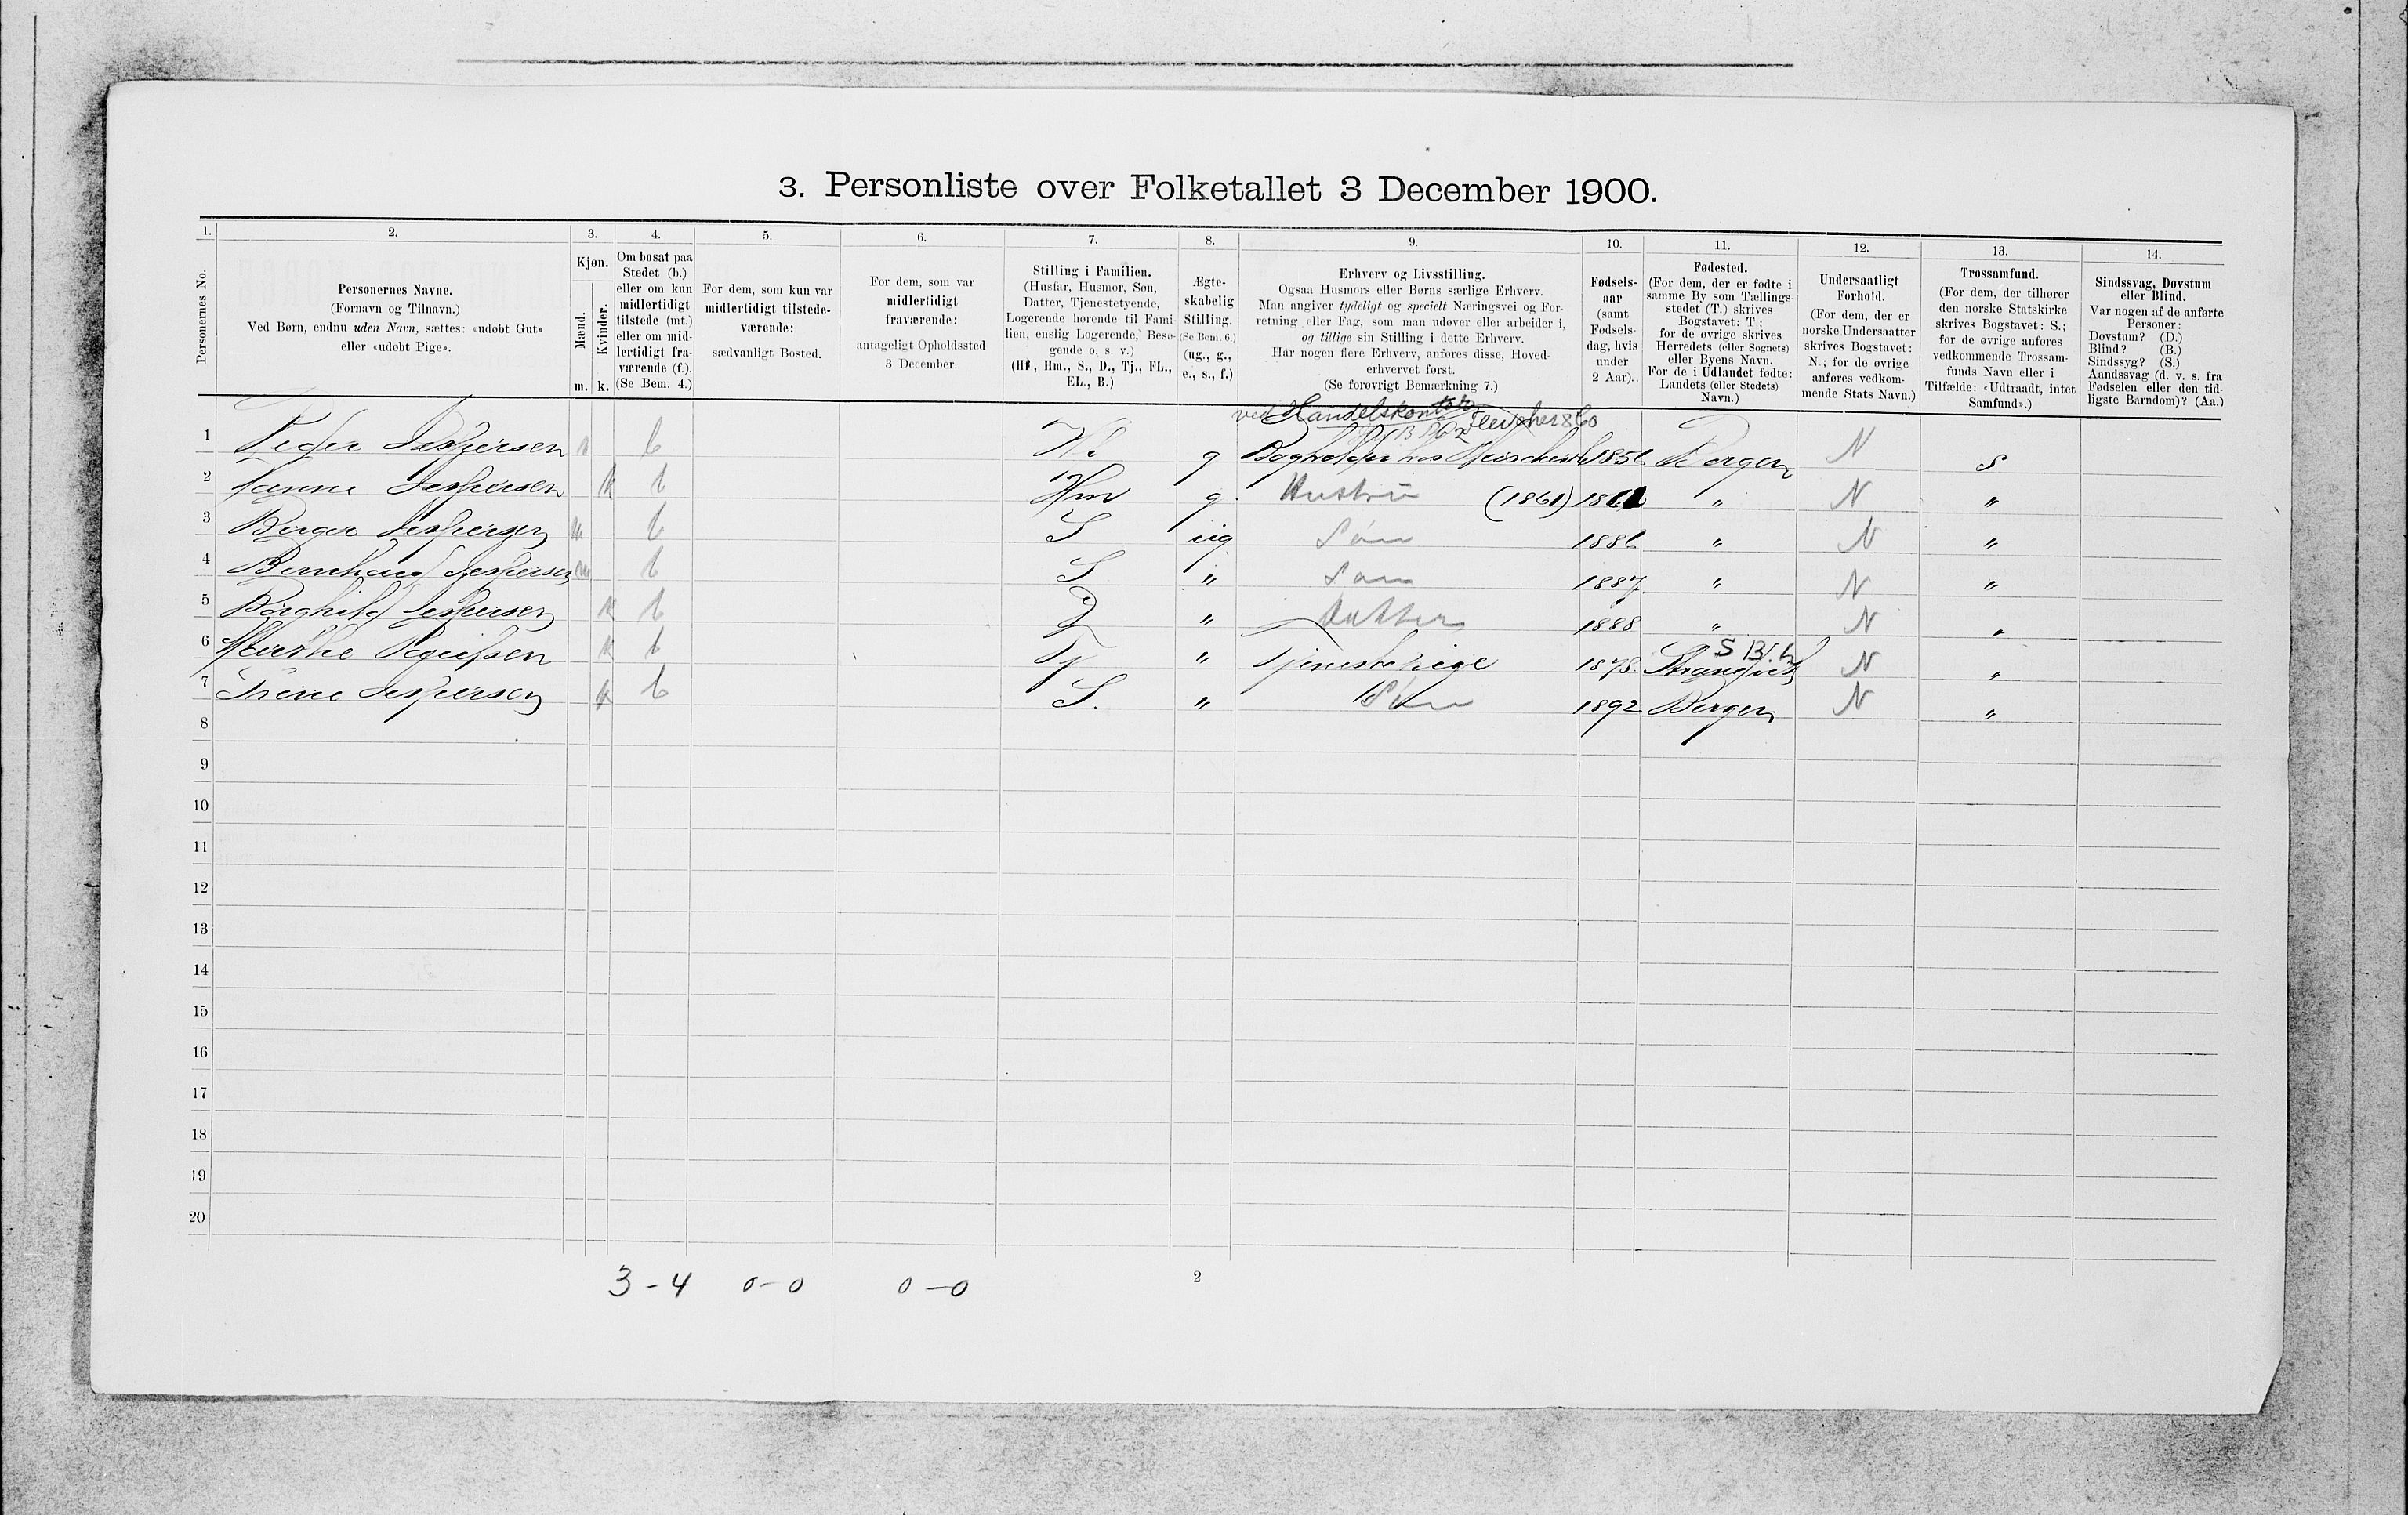 3. Personliste over Folketallet 3 December 1900.
1. 2. 3. 4. 5. 6. 7. 8. 9. 10. 11. 12. 13. 14.
Personernes No.
Personernes Navne.
(Fornavn og Tilnavn.)
Ved Børn, endnu uden Navn, sættes: «udøbt Gut»
eller «udøbt Pige».
Kjøn.
Mænd.
Kvinder.
m. k.
Om bosat paa
Stedet (b.)
eller om kun
midlertidigt
tilstede (mt.)
eller om mid-
lertidigt fra-
værende (f.).
(Se Bem. 4.)
For dem, som kun var
midlertidigt tilstede-
værende:
sædvanligt Bosted.
For dem, som var
midlertidigt
fraværende:
antageligt Opholdssted
3 December.
Stilling i Familien.
(Husfar, Husmor, Søn,
Datter, Tjenestetyende,
Logerende hørende til Fami-
lien, enslig Logerende, Besø-
gende o. s. v.)
(Hf., Hm., S., D., Tj., FL.,
EL., B.)
Ægte-
skabelig
Stilling.
(Se Bem. 6.)
(ug., g.,
e., s., f.)
Erhverv og Livsstilling.
Ogsaa Husmors eller Børns særlige Erhverv.
Man angiver tydeligt og specielt Næringsvei og For-
retning eller Fag, som man udøver eller arbeider i,
og tillige sin Stilling i dette Erhverv.
Har nogen flere Erhverv, anføres disse, Hoved-
erhvervet først.
(Se forøvrigt Bemærkning 7.)
Fødsels-
aar
(samt
Fødsels-
dag, hvis
under
2 Aar).
Fødested.
(For dem, der er fødte i
samme By som Tællings-
stedet (T.) skrives
Bogstavet: T.;
for de øvrige skrives
Herredets (eller Sognets)
eller Byens Navn.
For de i Udlandet fødte:
Landets (eller Stedets)
Navn.)
Undersaatligt
Forhold.
(For dem, der er
norske Undersaatter
skrives Bogstavet:
N.; for de øvrige
anføres vedkom-
mende Stats Navn.)
Trossamfund.
(For dem, der tilhører
den norske Statskirke
skrives Bogstavet: S.;
for de øvrige anføres
vedkommende Trossam-
funds Navn eller i
Tilfælde: «Udtraadt, intet
Samfund».)
Sindssvag, Døvstum
eller Blind.
Var nogen af de anførte
Personer:
Døvstum? (D.)
Blind? (B.)
Sindssyg? (S.)
Aandssvag (d. v. s. fra
Fødselen eller den tid-
ligste Barndom)? (Aa.)
ved Handelskontor Fleischer & Co
1 Peder Jespersen m b g Bogholder hos Bergen N S
2 Hanna Jespersen k b Hm g Hustru (1861) " N "
3 Birger Jespersen m b S ug Søn 1886 " N "
4 Bernhard Jespersen m b S " Søn 1887 " N "
5 Borghild Jespersen k b D " Datter 1888 " N "
S B.h.
6 Marthe k b Tj " Tjenestepige 1878 Strandvik N "
7 Jespersen k b S. " 1892 Bergen N "
8
9
10
11
12
13
14
15
16
17
18
19
20
3-4 0-0 0-0 2